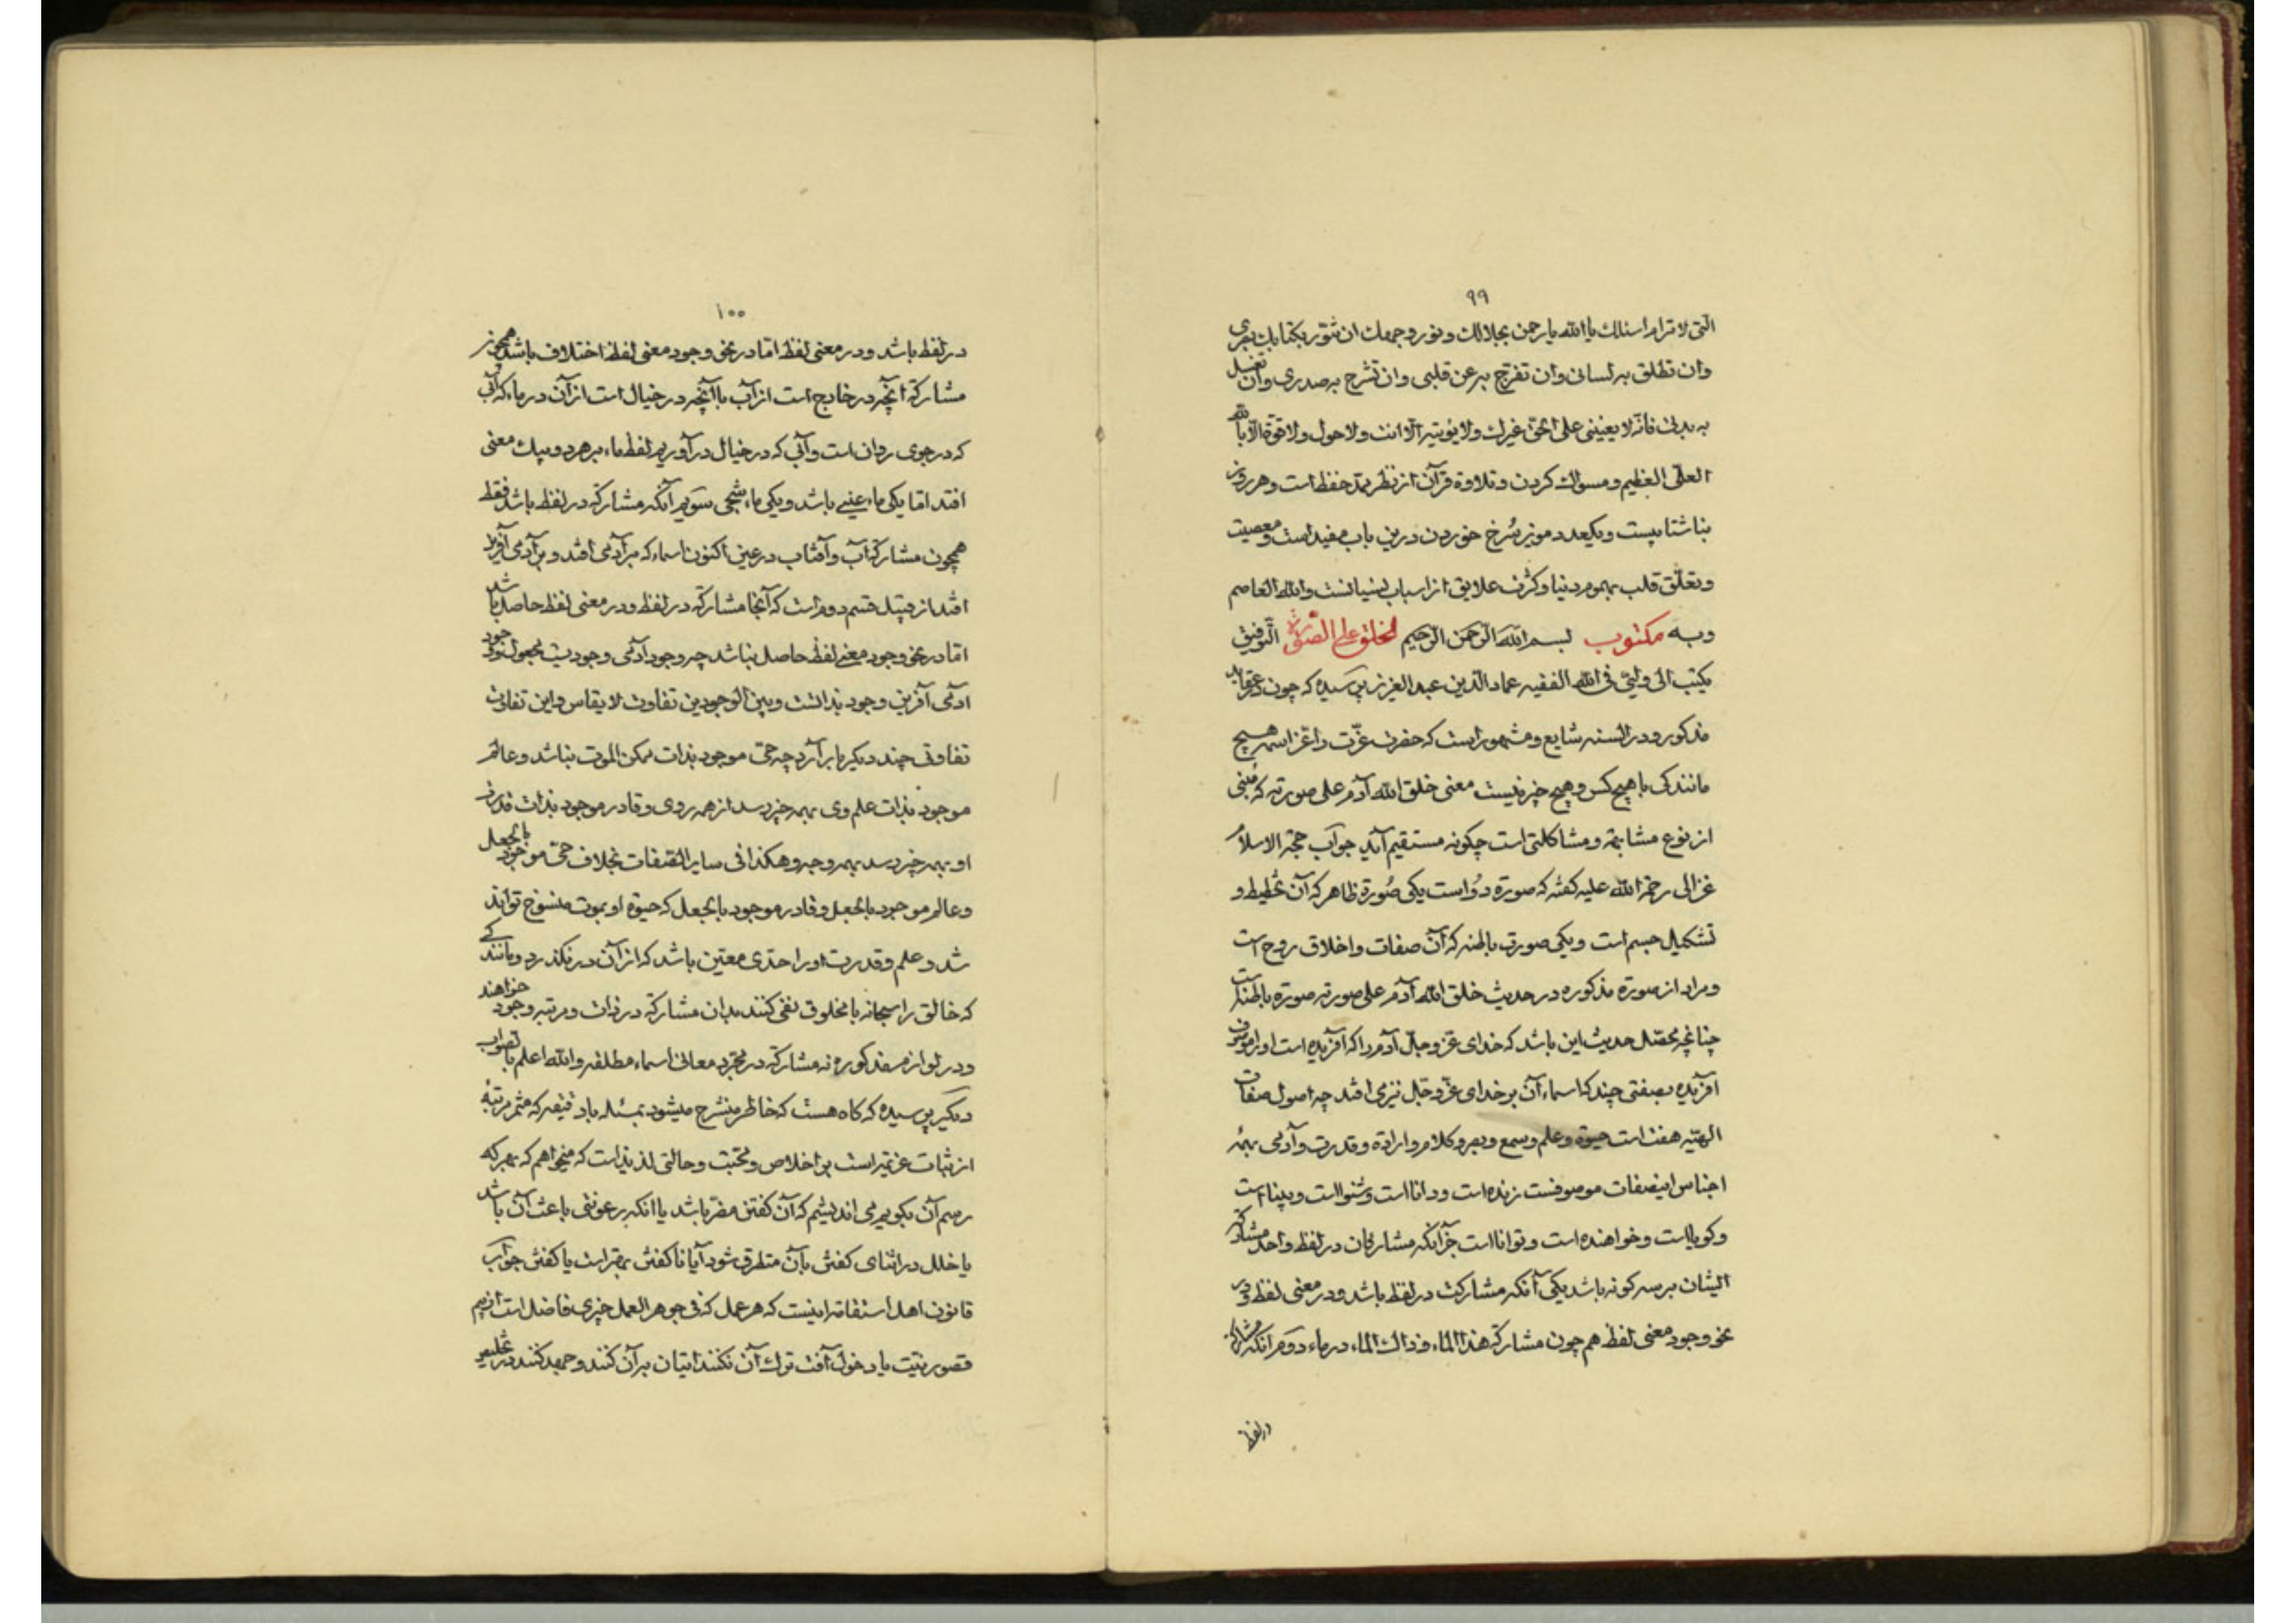 ۹۹
التی لا ترام اسئلك یا الله یا رحمن بجلالك و نور وجهك ان تنور بکتابك بصری
وان تطلق به لسانی وان تفرج به عن قلبی وان تشرح به صدری وان تغسل
به بدنی فانه لا یعیننی علی الحق غیرك ولا یؤتیه الا انت ولا حول ولا قوة الا بالله
العلی العظیم و مسواك کردن و تلاوة قرآن از نظر ممد حفظ است و هر روز
بناشتا بیست و یکعدد مویز سرخ خوردن درین باب مفید است و معصیت
و تعلق قلب بهموم دنیا و کثرت علایق از اسباب نسیانست والله العاصم
وبه مکتوب بسم الله الرحمن الرحیم لخلق علی الصورة التوفیق
یکتب الی ولیی فی الله الفقیه عماد الدین عبد العزیز پرسیده که چون در عقاید
مذکور و در السنه شایع و مشهور است که حضرت عزت را عز اسمه هیچ
مانندکی با هیچ کس و هیچ چیز نیست معنی خلق الله آدم علی صورته که مبنی
از نوع مشابهة و مشاکلتی است چکونه مستقیم آید جواب حجة الاسلام
غزالی رحمة الله علیه کفته که صورة دو است یکی صورة ظاهر که آن تخطیط و
تشکیل جسم است و یکی صورت باطنه که آن صفات و اخلاق روح است
و مراد از صورة مذکوره در حدیث خلق الله آدم علی صورته صورة باطنه است
چنانچه محصل حدیث این باشد که خدای عز و جل آدم را که آفریده است او را موصوف
آفریده بصفتی چند که اسماء آن بر خدای عز و جل نیز می افتد چه اصول صفات
الهیه هفت است حیوة و علم و سمع و بصر و کلام و ارادة و قدرت و آدمی بهمه
اجناس اینصفات موصوفست زنده است و دانا است و شنوا است و بینا است
و کویا است و خواهنده است و توانا است جز آنکه مشارکان در لفظ واحد مشارکة
ایشان بر سه کونه باشد یکی آنکه مشارکت در لفظ باشد و در معنی لفظ و در
نحو وجود معنی لفظ هم چون مشارکة هذا الماء و ذاك الماء در ماء دوم آنکه مشارکة
در لفظ
۱۰۰
در لفظ باشد و در معنی لفظ اما در نحو وجود معنی لفظ اختلاف باشد همچون
مشارکة آنچه در خارج است از آب با آنچه در خیال است از آن در ماء که آبی
که در جوی روان است و آبی که در خیال در آوریم لفظ ماء بر هر دو بیك معنی
افتد اما یکی ماء عینی باشد و یکی ماء شبحی سوم آنکه مشارکة در لفظ باشد فقط
همچون مشارکة آب و آفتاب در عین اکنون اسماء که بر آدمی افتد و بر آدمی آفرین
افتد از قبیل قسم دوم است که آنجا مشارکة در لفظ و در معنی لفظ حاصل باشد
اما در نحو وجود معنی لفظ حاصل نباشد چه وجود آدمی وجودیست مجعول و وجود
آدمی آفرین وجود بذاتست و بین الوجودین تفاوت لا یقاس و این تفاوت
تفاوتی چند دیکر بار آرد چه حی موجود بذات ممکن الموت نباشد و عالم
موجود بذات علم وی بهمه چیز رسد از همه روی و قادر موجود بذات قدرت
او بهمه چیز رسد بهمه وجه و هکذا فی سایر الصفات بخلاف حی موجود بالجعل
و عالم موجود بالجعل و قادر موجود بالجعل که حیوة او بموت منسوخ تواند
شد و علم و قدرت او را حدی معین باشد که از آن در نکذرد و مانندکی
که خالق را سبحانه با مخلوق نفی کنند بدان مشارکة در ذات و مرتبه وجود خواهند
و در لوازم مذکوره نه مشارکة در مجرد معانی اسماء مطلقه والله اعلم بالصواب
دیکر پرسیده که کاه هست که خاطر منشرح میشود بمسئله یا دقیقه که مثمر مرتبهٔ
از ثبات عزیمة است بر اخلاص و محبت و حالتی لذیذ است که میخواهم که بهر که
رسم آن بکویم می اندیشم که آن کفتن مضر باشد یا انکه رعونتی باعث آن باشد
یا خلل در اثنای کفتن بآن متطرق شود آیا ناکفتن بهتر است یا کفتن جواب
قانون اهل استقامة اینست که هر عمل که فی جوهر العمل خیری فاضل است از بیم
قصور نیت یا دخول آفت ترك آن نکنند اتیان بر آن کنند و جهد کنند در تخلیص